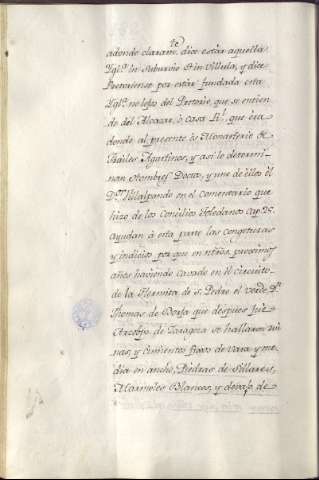 te
adonde claram. dice estàr aquella
Ygl.ª In Suburvio Et in Villula, y dice
Pretoriense por estàr fundada esta
Ygl.ª no lejos del Pretorio, que se entien
de del Alcazar, ò casa R.l que era
donde al presente ês Monasterio de
Frailes Agustinos, y asi lo determi
nan Hombres Doctos, y uno de ellos el
D.r Villalpando en el comentario que
hizo de los Concilios Toledanos Cap. 25.
Ayudan à esta parte las congeturas
y indicios por que en n̄ros. proximos
años haciendo cavado en el circuito
de la Hermita de S. Pedro el verde D.n
Thomas de Borja que despues fue
Arzobpo de Zaragoza se hallaron rui
nas, y Cimientos fixos de vara y me
dia en ancho, Piedras de Sillares,
Marmoles Blancos, y devajo de